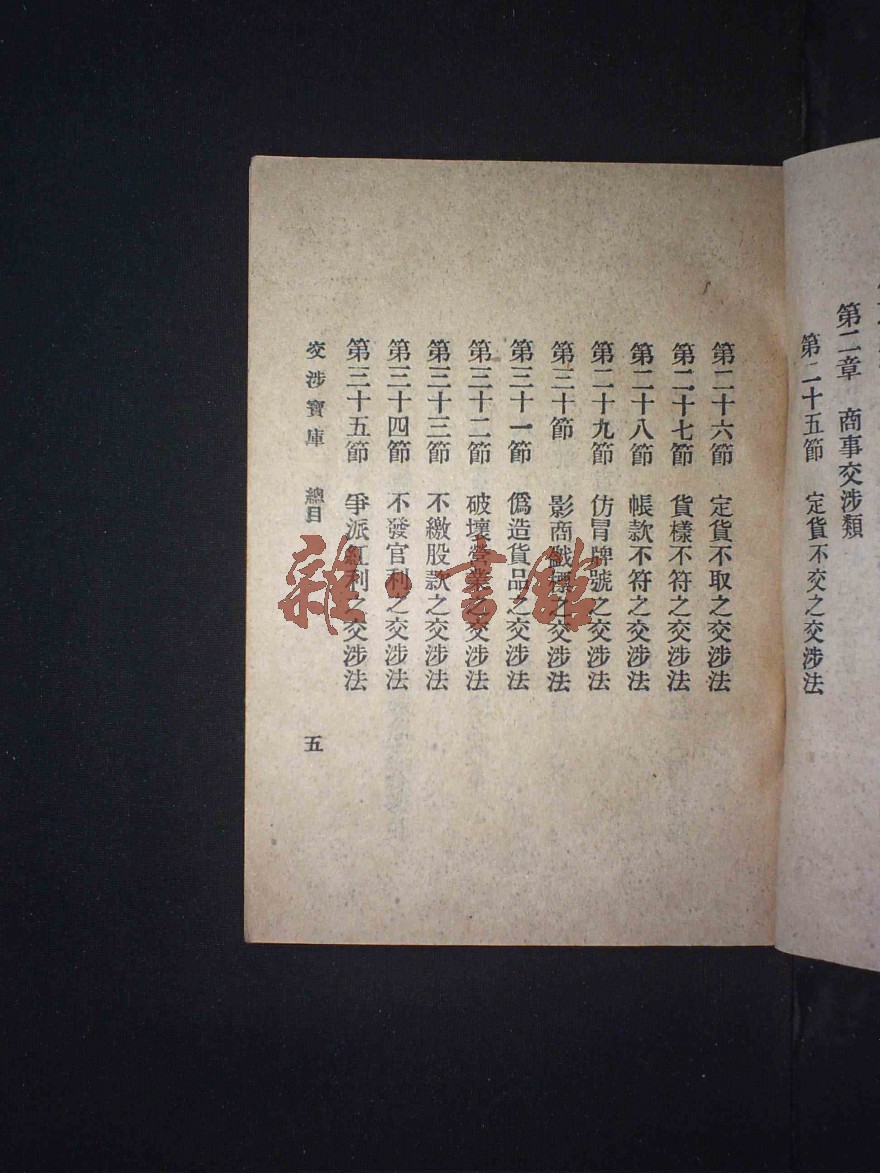 第二章　商事交涉類
第二十五節　定貨不交之交涉法
第二十六節　定貨不取之交涉法
第二十七節　貨樣不符之交涉法
第二十八節　帳款不符之交涉法
第二十九節　仿冒牌號之交涉法
第三十節　影商戤標之交涉法
第三十一節　僞造貨品之交涉法
第三十二節　破壞營業之交涉法
第三十三節　不繳股款之交涉法
第三十四節　不發官利之交涉法
第三十五節　爭派紅利之交涉法
交涉寶庫　總目　五
雜·書館